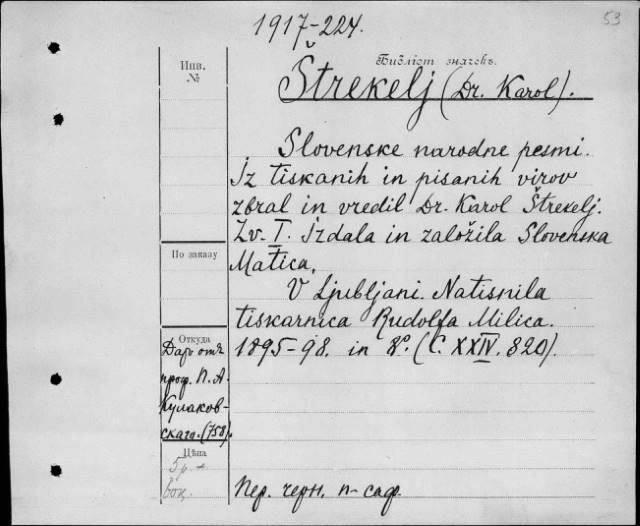 1917-224.
53
Инв.
№
Библіот. значекъ.
Štrekelj (Dr. Karol).
Slovenske narodne pesmi.
Iz tiskanih in pisanih virov
zbral in vredil Dr. Karol Štrekelj.
Zv. I. Izdala in založila Slovenska
Matica.
По заказу
V Ljubljani. Natisnila
tiskarnica Rudolfa Milica.
1895-98. in 8º. (C. XXIV. 820).
Откуда
Даръ отъ
проф. П. А.
Кулаков-
скаго. (758).
Цѣна
5 р. -
Пер. черн. п-саф.